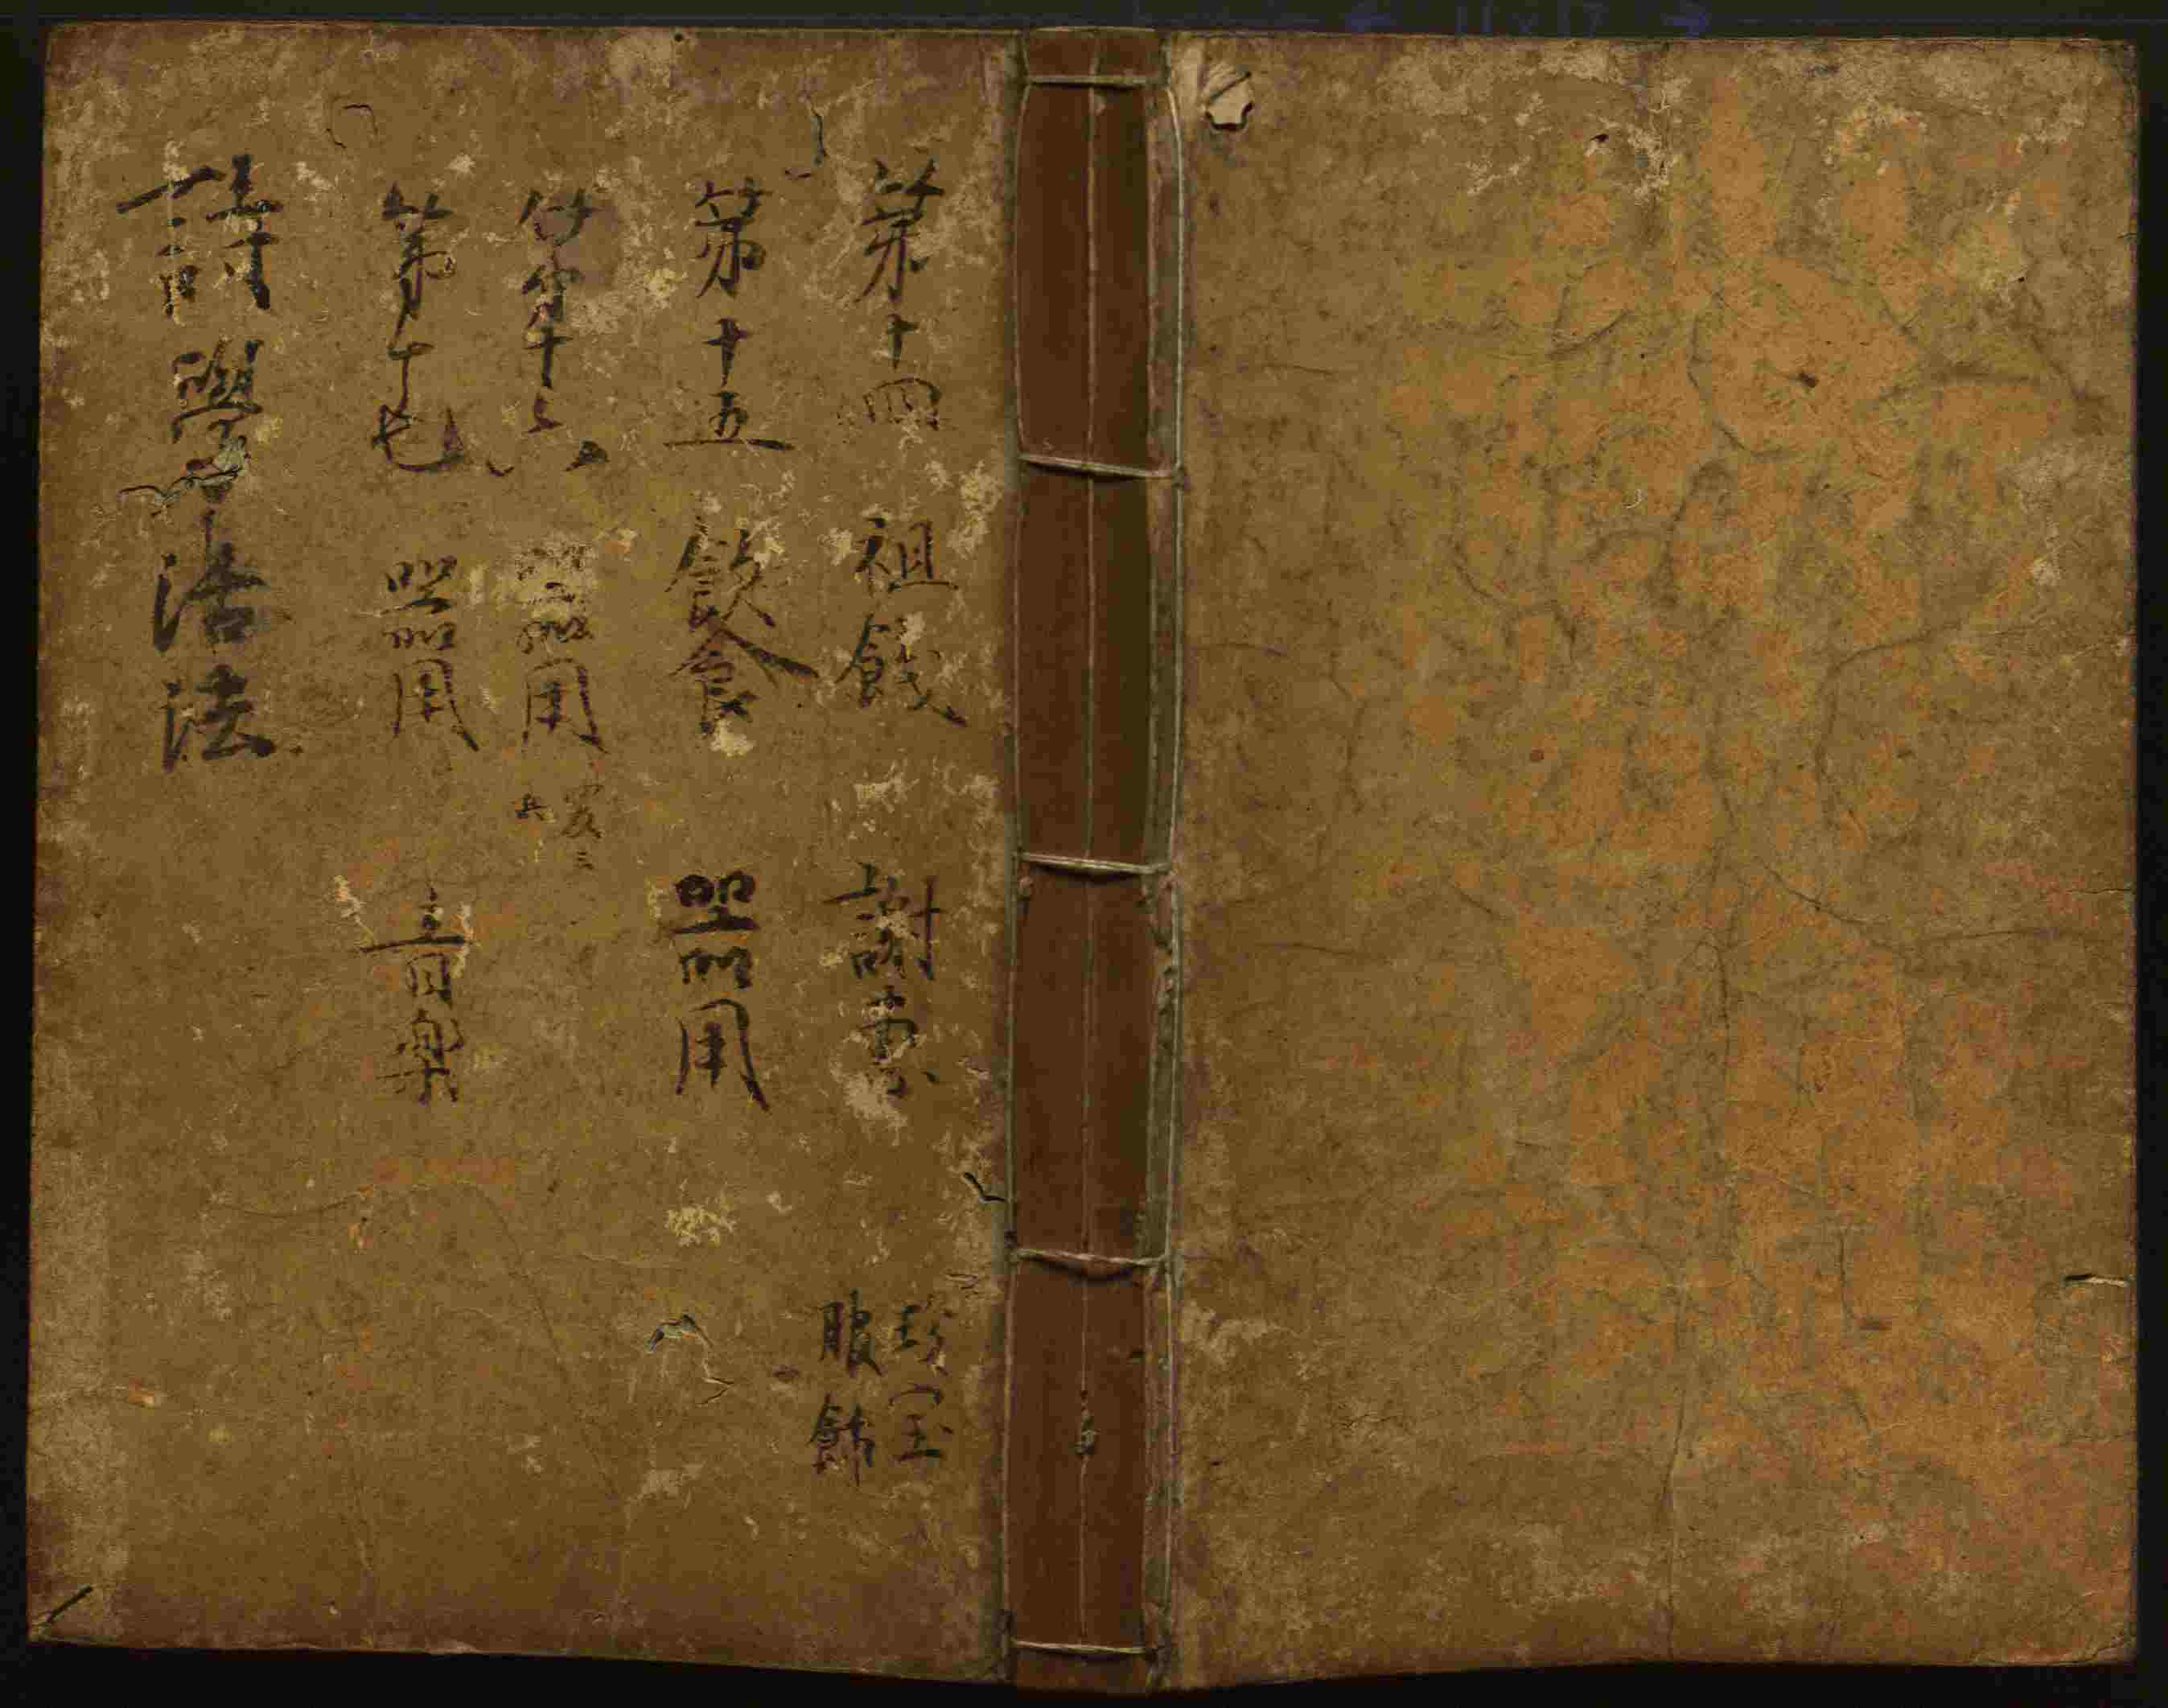 第十四 祖餞 謝恵 珍宝 服飾
第十五 飲食 器用
第十六 器用
第十七 器用 音楽
詩學活法